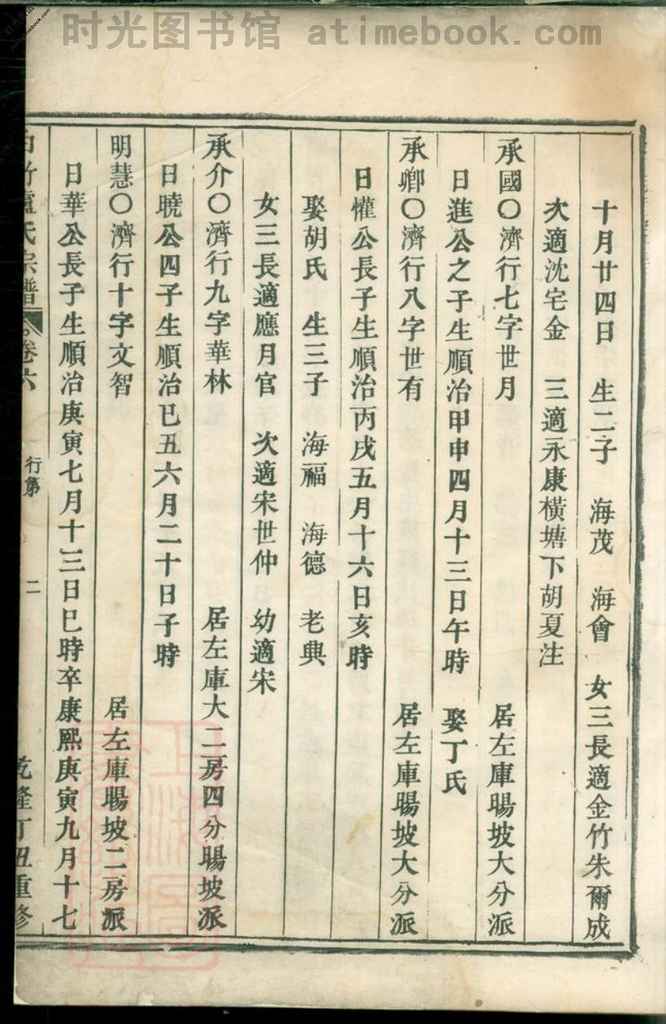 时光图书馆 atimebook.com
十月廿四日 生二子 海茂 海會 女三長適金竹朱爾成
次適沈宅金 三適永康橫塘下胡夏注
承國〇濟行七字世月 居左庫暘坡大分派
日進公之子生順治甲申四月十三日午時 娶丁氏
承卿〇濟行八字世有 居左庫暘坡大分派
日懽公長子生順治丙戌五月十六日亥時
娶胡氏 生三子 海福 海德 老典
女三長適應月官 次適宋世仲 幼適宋
承介〇濟行九字華林 居左庫大二房四分暘坡派
日曉公四子生順治己丑六月二十日子時
明慧〇濟行十字文智 居左庫暘坡二房派
日華公長子生順治庚寅七月十三日巳時卒康熙庚寅九月十七
盧氏宗譜 卷六 行第 二 乾隆丁丑重修